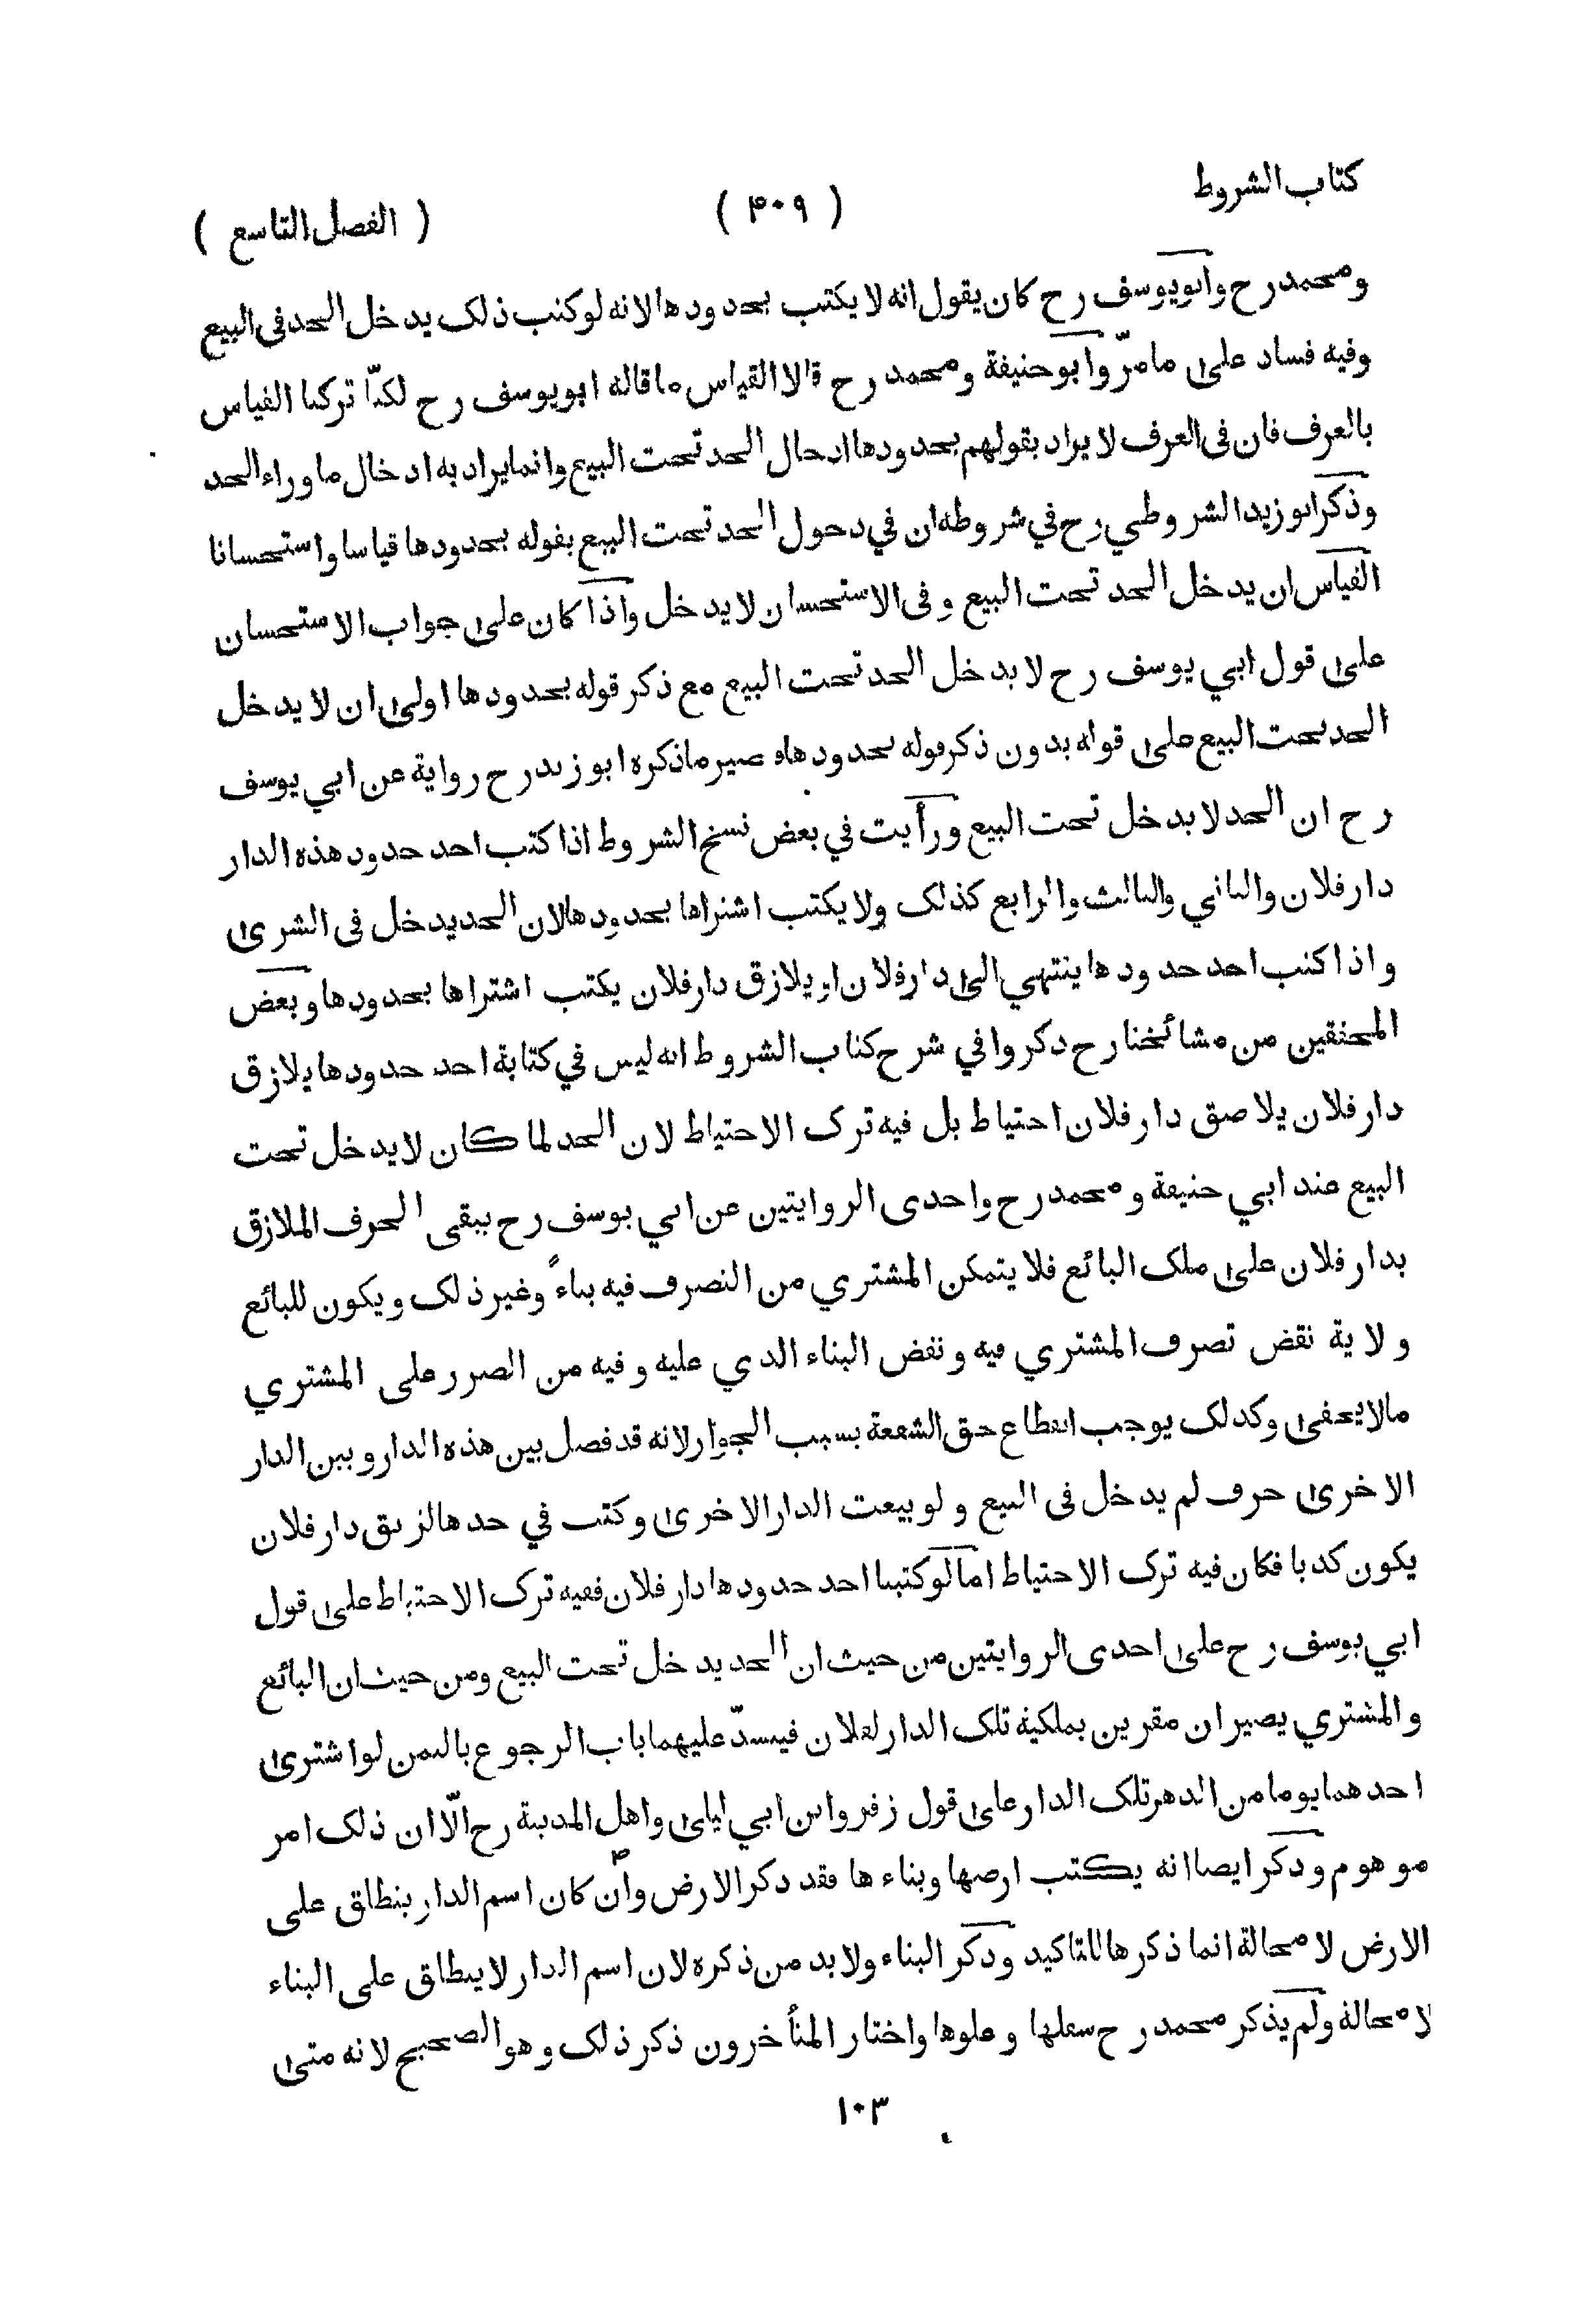 كتاب الشروط
( ۴۰۹ )
( الفصل التاسع )
ومحمد رح وابويوسف رح كان يقول انه لا يكتب بحدودها لانه لوكتب ذلك يدخل الحد فى البيع
وفيه فساد على مامرّ وابوحنيفة ومحمد رح قالا القياس ماقاله ابويوسف رح لكنّا تركنا القياس
بالعرف فان فى العرف لا يراد بقولهم بحدودها ادخال الحد تحت البيع وانما يراد به ادخال ما وراء الحد
وذكر ابوزيد الشروطي رح في شروطه ان في دخول الحد تحت البيع بقوله بحدودها قياسا واستحسانا
القياس ان يدخل الحد تحت البيع وفى الاستحسان لا يدخل واذا كان على جواب الاستحسان
على قول ابي يوسف رح لا يدخل الحد تحت البيع مع ذكر قوله بحدودها اولى ان لا يدخل
الحد تحت البيع على قوله بدون ذكر قوله بحدودها فيصير ماذكره ابوزيد رح رواية عن ابي يوسف
رح ان الحد لا يدخل تحت البيع ورأيت في بعض نسخ الشروط اذا كتب احد حدود هذه الدار
دار فلان والثاني والثالث والرابع كذلك ولا يكتب اشتراها بحدودها لان الحد يدخل فى الشرى
واذا كتب احد حدودها ينتهي الى دار فلان او يلازق دار فلان يكتب اشتراها بحدودها وبعض
المحققين من مشائخنا رح ذكروا في شرح كتاب الشروط انه ليس في كتابة احد حدودها يلازق
دار فلان يلاصق دار فلان احتياط بل فيه ترك الاحتياط لان الحد لما كان لا يدخل تحت
البيع عند ابي حنيفة ومحمد رح واحدى الروايتين عن ابي يوسف رح يبقى الحرف الملازق
بدار فلان على ملك البائع فلا يتمكن المشتري من التصرف فيه بناءً وغير ذلك ويكون للبائع
ولاية نقض تصرف المشتري فيه ونقض البناء الذي عليه وفيه من الضرر على المشتري
مالا يخفى وكذلك يوجب انقطاع حق الشفعة بسبب الجوار لانه قد فصل بين هذه الدار وبين الدار
الاخرى حرف لم يدخل فى البيع ولو بيعت الدار الاخرى وكتب في حدها لزيق دار فلان
يكون كذبا فكان فيه ترك الاحتياط اما لوكتبنا احد حدودها دار فلان ففيه ترك الاحتياط على قول
ابي يوسف رح على احدى الروايتين من حيث ان الحد يدخل تحت البيع ومن حيث ان البائع
والمشتري يصيران مقرين بملكية تلك الدار لفلان فيسدّ عليهما باب الرجوع بالثمن لو اشترى
احدهما يوما من الدهر تلك الدار على قول زفر وابن ابي ليلى واهل المدينة رح الّا ان ذلك امر
موهوم وذكر ايضا انه يكتب ارضها وبناءها فقد ذكر الارض وان كان اسم الدار ينطلق على
الارض لا محالة انما ذكرها للتاكيد وذكر البناء ولا بد من ذكره لان اسم الدار لا ينطلق على البناء
لا محالة ولم يذكر محمد رح سفلها وعلوها واختار المتأخرون ذكر ذلك وهو الصحيح لانه متى
١٠٣